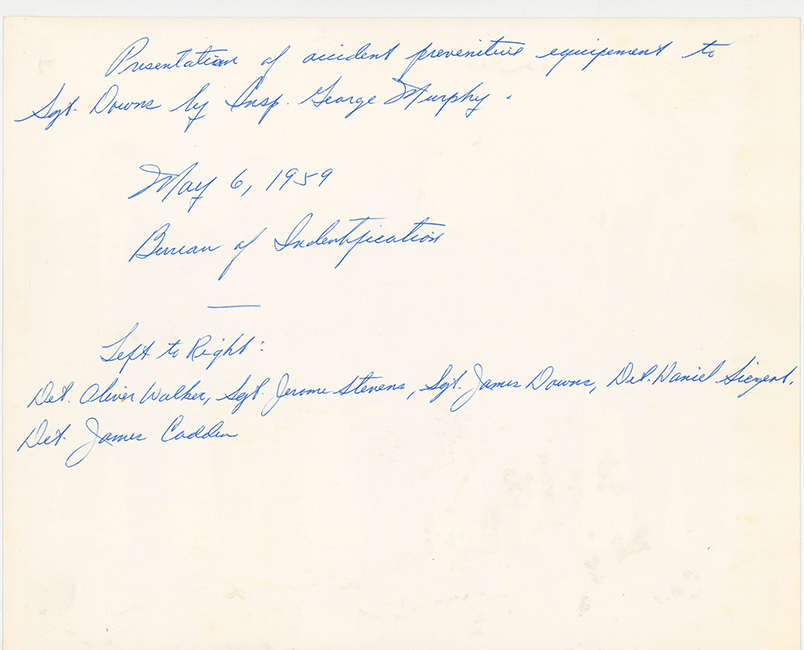 Presentation of accident prevenitive equipement to
Sgt. Downs by Insp. George Murphy.
May 6, 1959
Bureau of Indentification
Left to Right:
Det. Oliver Walker, Sgt. Jerome Stevens, Sgt. James Downs, Det. Daniel
Det. James Cadden